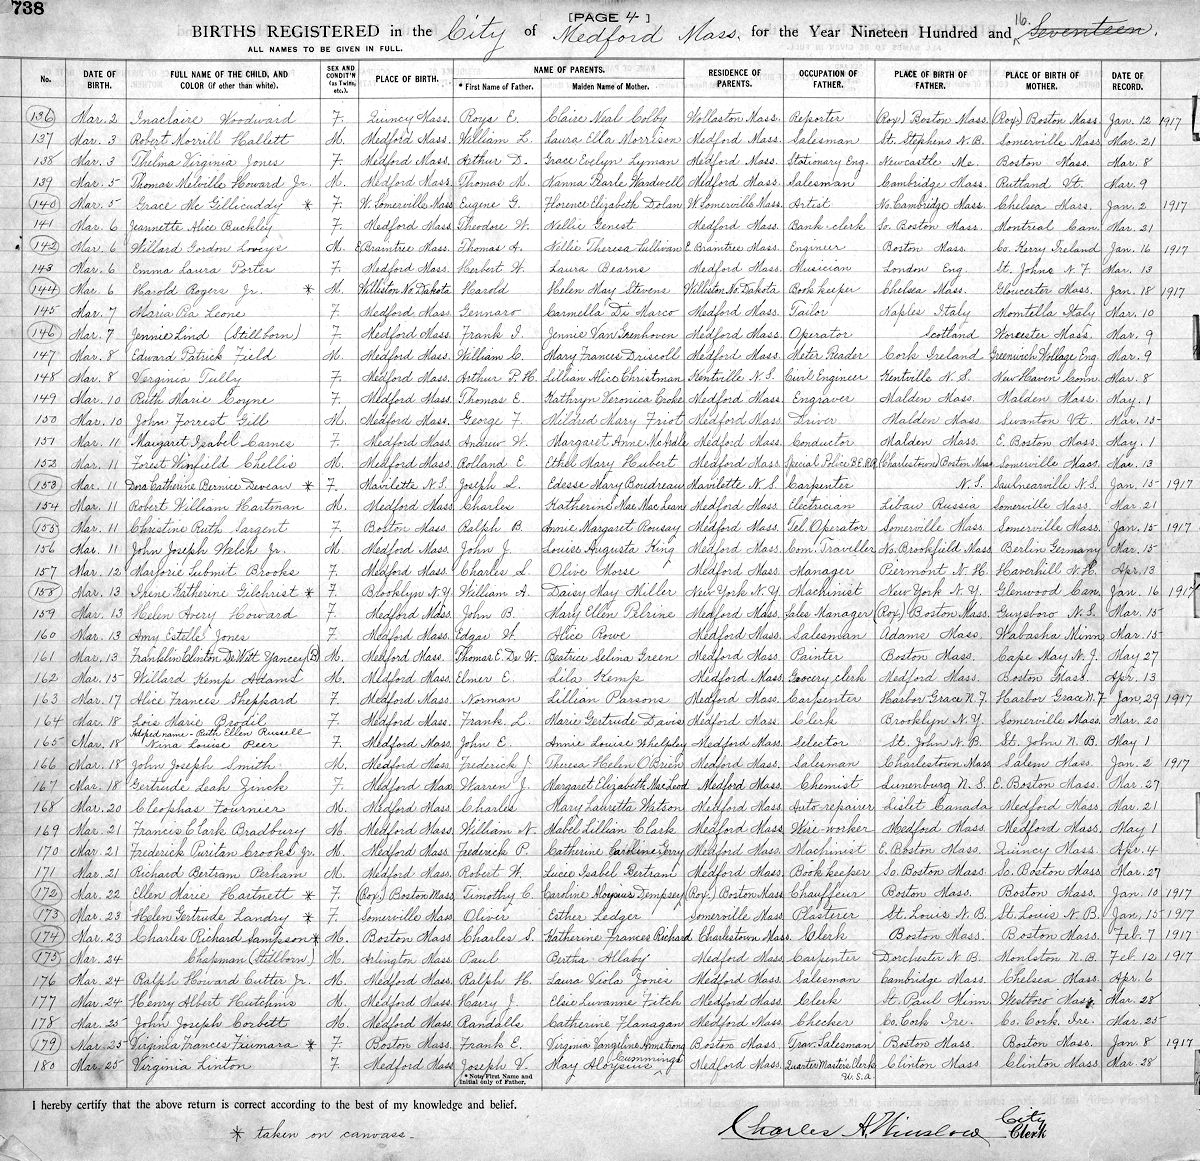 738
[PAGE 4]
BIRTHS REGISTERED in the City of Medford Mass. for the Year Nineteen Hundred and 16. Seventeen.
ALL NAMES TO BE GIVEN IN FULL.
No. DATE OF BIRTH. FULL NAME OF THE CHILD, AND COLOR (if other than white). SEX AND CONDIT'N (as Twins, etc.). PLACE OF BIRTH. NAME OF PARENTS. * First Name of Father. Maiden Name of Mother. RESIDENCE OF PARENTS. OCCUPATION OF FATHER. PLACE OF BIRTH OF FATHER. PLACE OF BIRTH OF MOTHER. DATE OF RECORD.
136 Mar. 2 Inaclaire Woodward F. Quincy Mass. Roys E. Claire Neal Colby Wollaston Mass. Reporter (Rox) Boston Mass. (Rox) Boston Mass. Jan. 12 1917
137 Mar. 3 Robert Morrill Hallett M. Medford Mass. William L. Laura Ella Morrison Medford Mass. Salesman St. Stephens N.B. Somerville Mass. Mar. 21
138 Mar. 3 Thelma Virginia Jones F. Medford Mass. Arthur D. Grace Evelyn Lyman Medford Mass. Stationary Eng. Newcastle Me. Boston Mass. Mar. 8
139 Mar. 5 Thomas Melville Howard Jr. M. Medford Mass. Thomas M. Nanna Pearle Wardwell Medford Mass. Salesman Cambridge Mass. Rutland Vt. Mar. 9
140 Mar. 5 Grace Mc Gillicuddy * F. W. Somerville Mass. Eugene G. Florence Elizabeth Dolan W. Somerville Mass. Artist No. Cambridge Mass. Chelsea Mass. Jan. 2 1917
141 Mar. 6 Jeannette Alice Buckley F. Medford Mass. Theodore W. Nellie Genest Medford Mass. Bank clerk So. Boston Mass. Montreal Can. Mar. 21
142 Mar. 6 Willard Gordon Loveys M. E. Braintree Mass. Thomas A. Nellie Theresa Sullivan E. Braintree Mass. Engineer Boston Mass. Co. Kerry Ireland Jan. 16 1917
143 Mar. 6 Emma Laura Porter F. Medford Mass. Herbert W. Laura Bearns Medford Mass. Musician London Eng. St. Johns N.F. Mar. 13
144 Mar. 6 Harold Rogers Jr. * M. Williston No. Dakota Harold Helen May Stevens Williston No. Dakota Book keeper Chelsea Mass. Gloucester Mass. Jan. 18 1917
145 Mar. 7 Maria Pia Leone F. Medford Mass. Gennaro Carmella Di Marco Medford Mass. Tailor Naples Italy Montella Italy Mar. 10
146 Mar. 7 Jennie Lind (Stillborn) F. Medford Mass. Frank I. Jennie Van Ikenhoven Medford Mass. Operator Scotland Worcester Mass. Mar. 9
147 Mar. 8 Edward Patrick Field M. Medford Mass. William C. Mary Frances Driscoll Medford Mass. Meter Reader Cork Ireland Greenwich Village Eng. Mar. 9
148 Mar. 8 Virginia Tully F. Medford Mass. Arthur P. H. Lillian Alice Christman Kentville N.S. Civil Engineer Kentville N.S. New Haven Conn. Mar. 8
149 Mar. 10 Ruth Marie Coyne F. Medford Mass. Thomas E. Kathryn Veronica Croke Medford Mass. Engraver Malden Mass. Malden Mass. May. 1
150 Mar. 10 John Forrest Gill M. Medford Mass. George F. Mildred Mary Friot Medford Mass. Driver Malden Mass. Swanton Vt. Mar. 15
151 Mar. 11 Margaret Isabel Carnes F. Medford Mass. Andrew W. Margaret Anne McArdle Medford Mass. Conductor Malden Mass. E. Boston Mass. May. 1
152 Mar. 11 Forest Winfield Chellis M. Medford Mass. Rolland E. Ethel Mary Hubert Medford Mass. Special Police B.E.R.R. (Charlestown) Boston Mass. Somerville Mass. Mar. 13
153 Mar. 11 Dora Catherine Bernice Deveau * F. Mavilette N.S. Joseph L. Edesse Mary Boudreau Mavilette N.S. Carpenter N.S. Saulnearville N.S. Jan. 15 1917
154 Mar. 11 Robert William Hartman M. Medford Mass. Charles Katherine Mae Mac Lean Medford Mass. Electrician Libau Russia Somerville Mass. Mar. 21
155 Mar. 11 Christine Ruth Sargent F. Boston Mass. Ralph B. Annie Margaret Rousay Medford Mass. Tel. Operator Somerville Mass. Somerville Mass. Jan. 15 1917
156 Mar. 11 John Joseph Welch Jr. M. Medford Mass. John J. Louise Augusta King Medford Mass. Com. Traveller No. Brookfield Mass. Berlin Germany Mar. 15
157 Mar. 12 Marjorie Submit Brooks F. Medford Mass. Charles L. Olive Morse Medford Mass. Manager Piermont N.H. Haverhill N.H. Apr. 13
158 Mar. 13 Irene Katherine Gilchrist * F. Brooklyn N.Y. William A. Daisy May Miller New York N.Y. Machinist New York N.Y. Glenwood Can. Jan. 16 1917
159 Mar. 13 Helen Avery Howard F. Medford Mass. John B. Mary Ellen Pelrine Medford Mass. Sales Manager (Rox) Boston Mass. Guysboro N.S. Mar. 15
160 Mar. 13 Amy Estelle Jones F. Medford Mass. Edgar W. Alice Rowe Medford Mass. Salesman Adams Mass. Wabasha Minn. Mar. 15
161 Mar. 13 Franklin Clinton DeWitt Yancey (B) M. Medford Mass. Thomas E. De W. Beatrice Selina Green Medford Mass. Painter Boston Mass. Cape May N.J. May 27
162 Mar. 15 Willard Kemp Adams M. Medford Mass. Elmer E. Lila Kemp Medford Mass. Grocery clerk Medford Mass. Boston Mass. Apr. 13
163 Mar. 17 Alice Frances Sheppard F. Medford Mass. Norman Lillian Parsons Medford Mass. Carpenter Harbor Grace N.F. Harbor Grace N.F. Jan. 29 1917
164 Mar. 18 Lois Marie Brodil F. Medford Mass. Frank L. Marie Gertrude Davis Medford Mass. Clerk Brooklyn N.Y. Somerville Mass. Mar. 20
Adopted name - Ruth Ellen Russell
165 Mar. 18 Nina Louise Peer F. Medford Mass. John E. Annie Louise Whelpley Medford Mass. Selector St. John N.B. St. John N.B. May 1
166 Mar. 18 John Joseph Smith M. Medford Mass. Frederick J. Theresa Helen O'Brien Medford Mass. Salesman Charlestown Mass. Salem Mass. Jan. 2 1917
167 Mar. 18 Gertrude Leah Zinck F. Medford Mass Warren J. Margaret Elizabeth MacLeod Medford Mass. Chemist Lunenburg N.S. E. Boston Mass. Mar. 27
168 Mar. 20 Cleophas Fournier M. Medford Mass. Charles Mary Laurette Watson Medford Mass. Auto repairer Lislet Canada Medford Mass. Mar. 21
169 Mar. 21 Francis Clark Bradbury M. Medford Mass. William N. Mabel Lillian Clark Medford Mass. Wire-worker Medford Mass. Medford Mass. May 1
170 Mar. 21 Frederick Puritan Crooks Jr. M. Medford Mass. Frederick P. Catherine Caroline Gerry Medford Mass. Machinist E. Boston Mass. Quincy Mass. Apr. 4
171 Mar. 21 Richard Bertram Perham M. Medford Mass. Robert W. Lucee Isabel Bertram Medford Mass. Book keeper So. Boston Mass. So. Boston Mass. Mar. 27
172 Mar. 22 Ellen Marie Hartnett * F. (Rox) Boston Mass. Timothy C. Caroline Aloysius Dempsey (Rox) Boston Mass. Chauffeur Boston Mass. Boston Mass. Jan. 10 1917
173 Mar. 23 Helen Gertrude Landry * F. Somerville Mass Oliver Esther Ledger Somerville Mass. Plasterer St. Louis N.B. St. Louis N.B. Jan. 15 1917
174 Mar. 23 Charles Richard Sampson * M. Boston Mass. Charles S. Katherine Frances Richard Charlestown Mass. Clerk Boston Mass. Boston Mass. Feb. 7 1917
175 Mar. 24 Chapman (Stillborn) M. Arlington Mass. Paul Bertha Allaby Medford Mass. Carpenter Dorchester N.B. Monkton N.B. Feb. 12 1917
176 Mar. 24 Ralph Howard Cutter Jr. M. Medford Mass. Ralph H. Laura Viola Jones Medford Mass. Salesman Cambridge Mass. Chelsea Mass. Apr. 6
177 Mar. 24 Henry Albert Hutchins M. Medford Mass. Harry J. Elsie Luvanne Fitch Medford Mass. Clerk St. Paul Minn. Westboro Mass. Mar. 28
178 Mar. 25 John Joseph Corbett M. Medford Mass. Randalls Catherine Flanagan Medford Mass. Checker Co. Cork Ire. Co. Cork. Ire. Mar. 25
179 Mar. 25 Virginia Frances Fiumara * F. Boston Mass. Frank E. Virginia Vangeline Armstrong Boston Mass. Trav. Salesman Boston Mass. Boston Mass. Jan. 8 1917
180 Mar. 25 Virginia Linton F. Medford Mass. Joseph V. May Aloysius Cummings Medford Mass. Quarter Masters Clerk U.S.A. Clinton Mass. Clinton Mass. Mar. 28
* Note First Name and Initial only of Father.
I hereby certify that the above return is correct according to the best of my knowledge and belief.
* taken on canvass.
Charles A. Winslow City Clerk